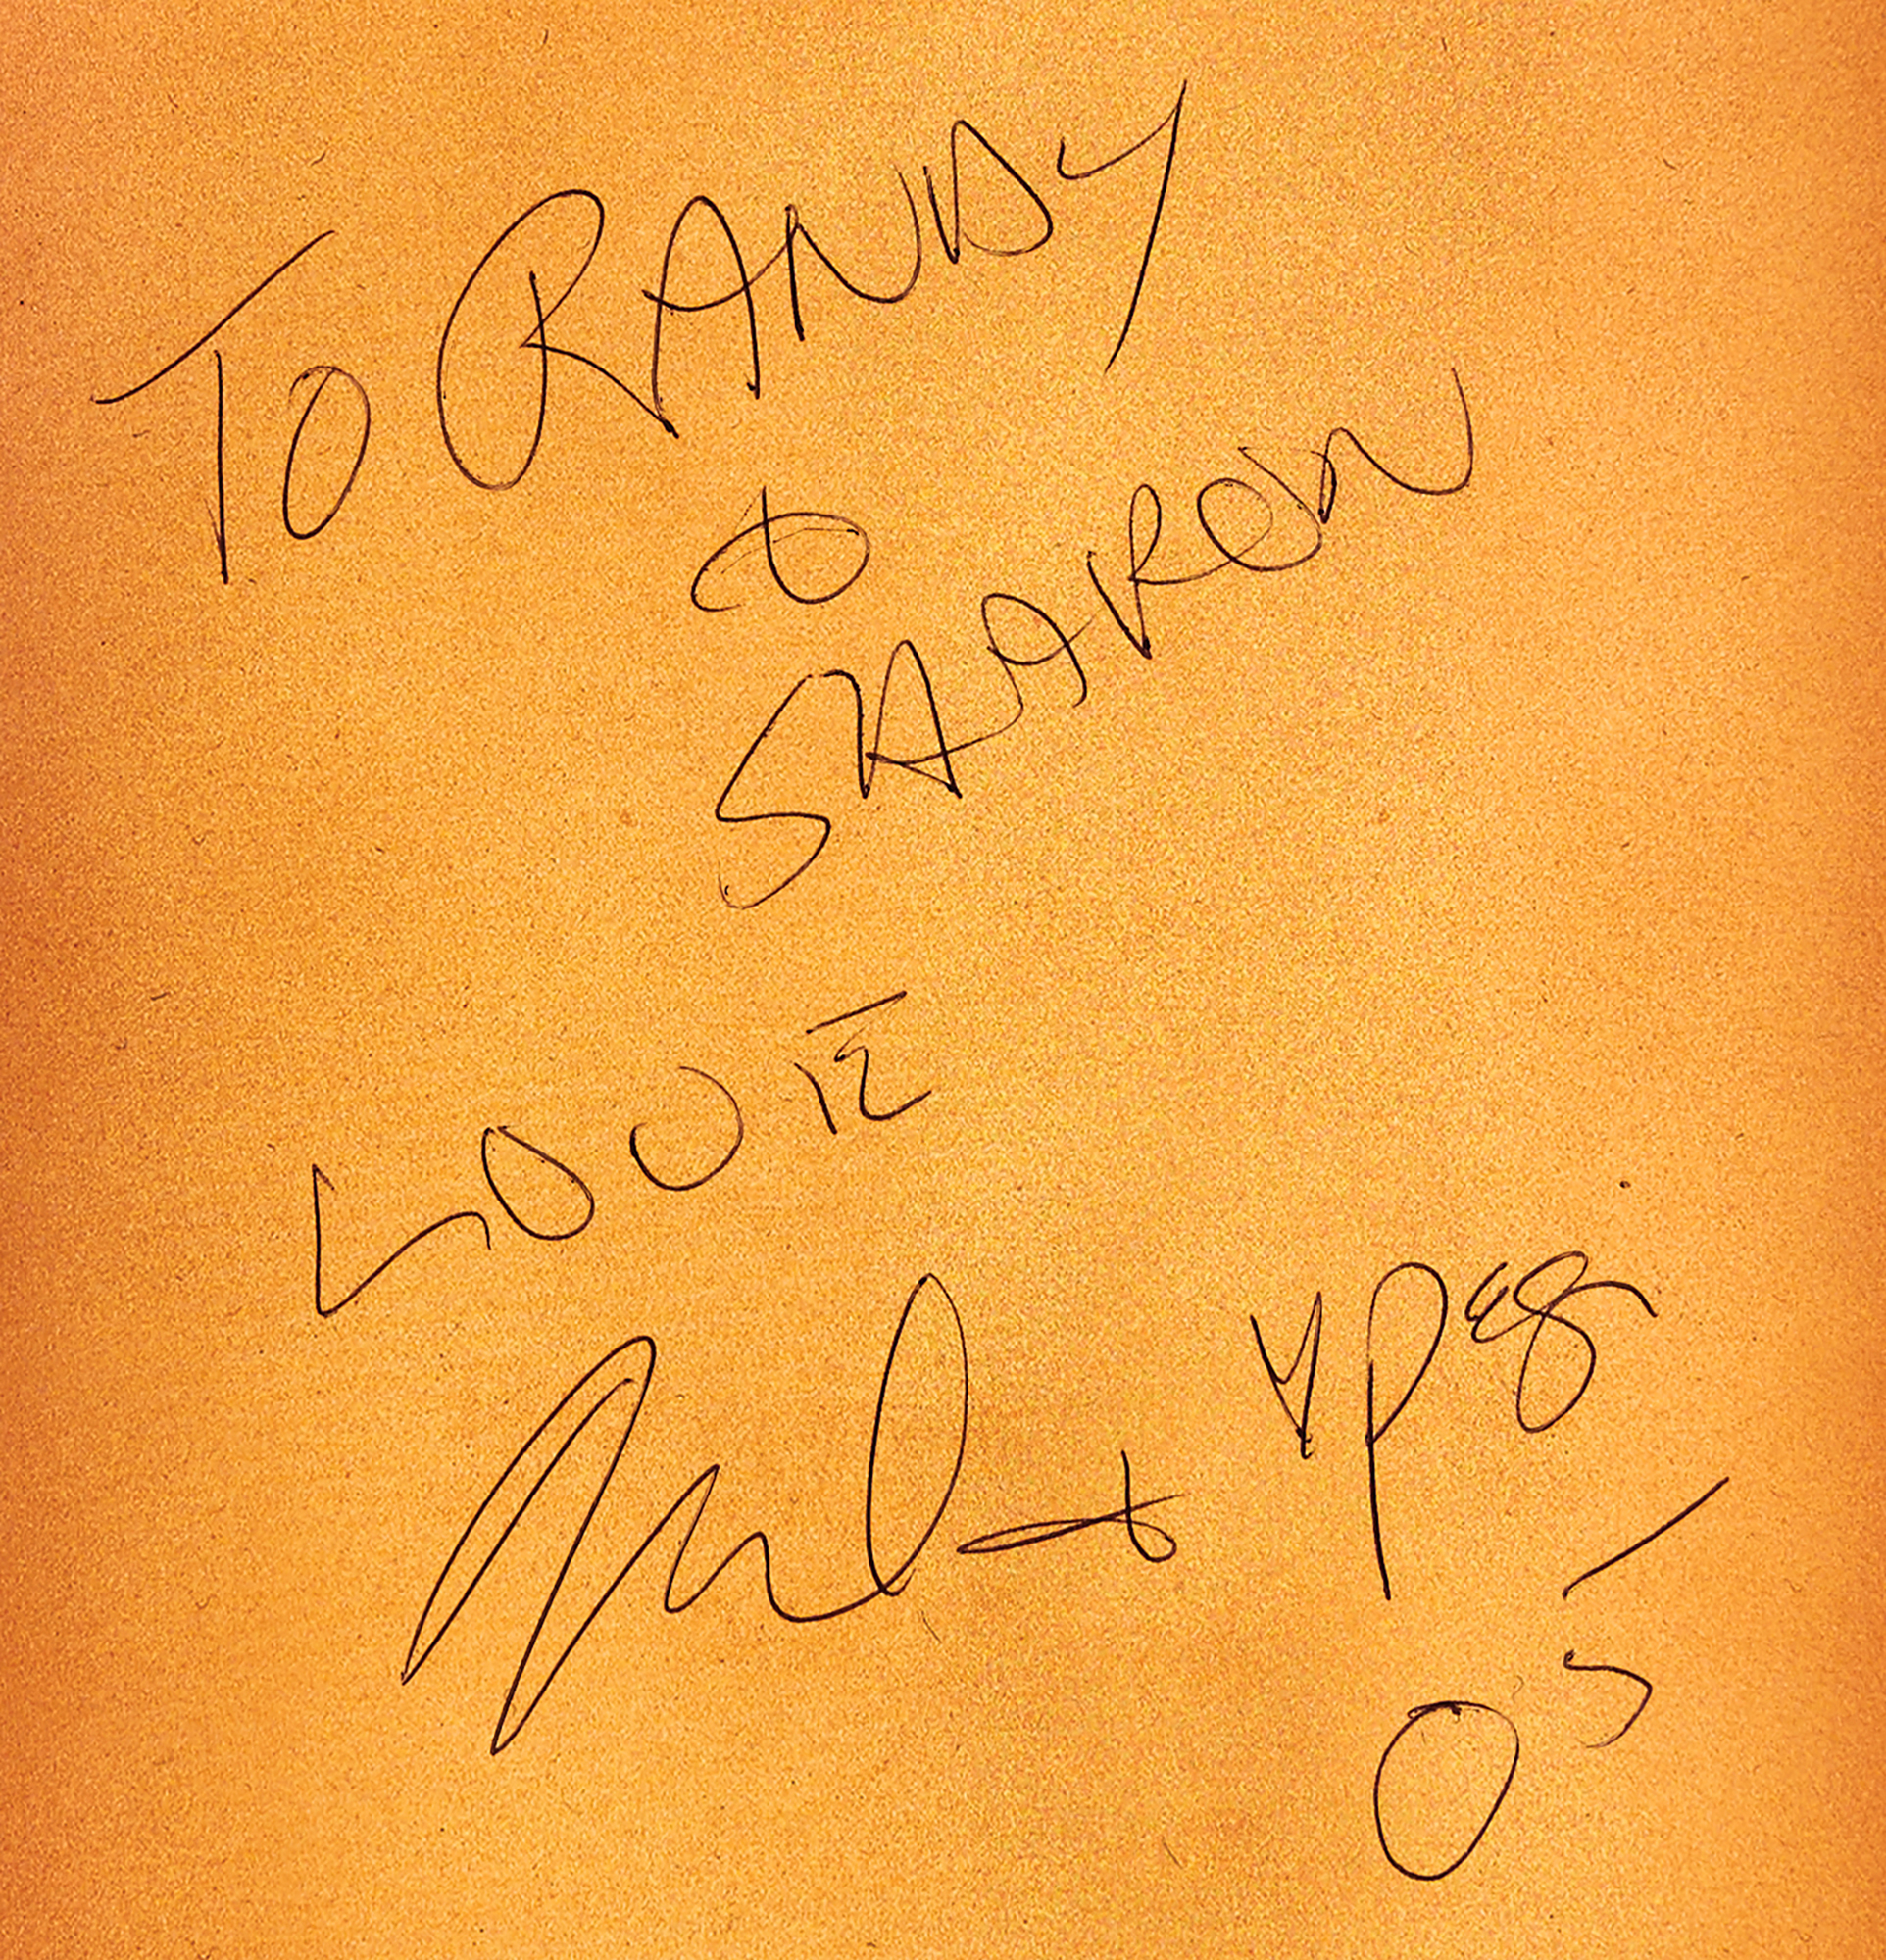 TO RANDY
&
SHARON
LOVE
05